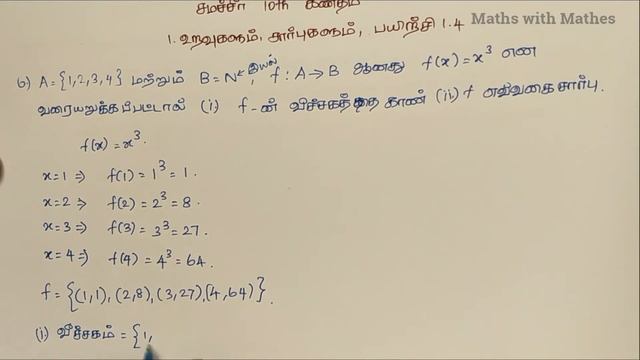 சமச்சீர் 10th கணிதம்
Maths with Mathes
1. உறவுகளும், சார்புகளும், பயிற்சி 1.4
6) A = {1,2,3,4} மற்றும் B = N இயல், f : A → B ஆனது f(x) = x³ என
வரையறுக்கப்பட்டால் (i) f-ன் வீச்சகத்தை காண் (ii) f எவ்வகை சார்பு.
f(x) = x³.
x=1 ⇒ f(1) = 1³ = 1.
x=2 ⇒ f(2) = 2³ = 8.
x=3 ⇒ f(3) = 3³ = 27.
x=4 ⇒ f(4) = 4³ = 64.
f = {(1,1), (2,8), (3,27), (4,64)}.
(i) வீச்சகம் = {1,